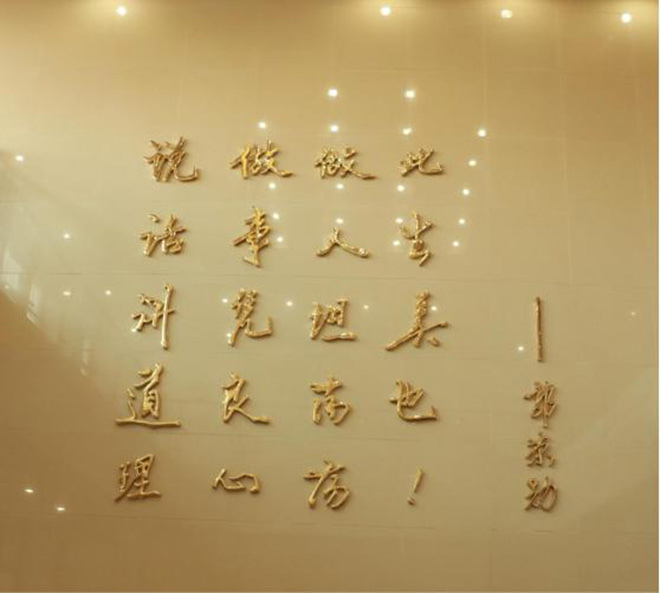 说话讲道理
做事凭良心
做人坦荡荡
此生美也!
——郭京勋